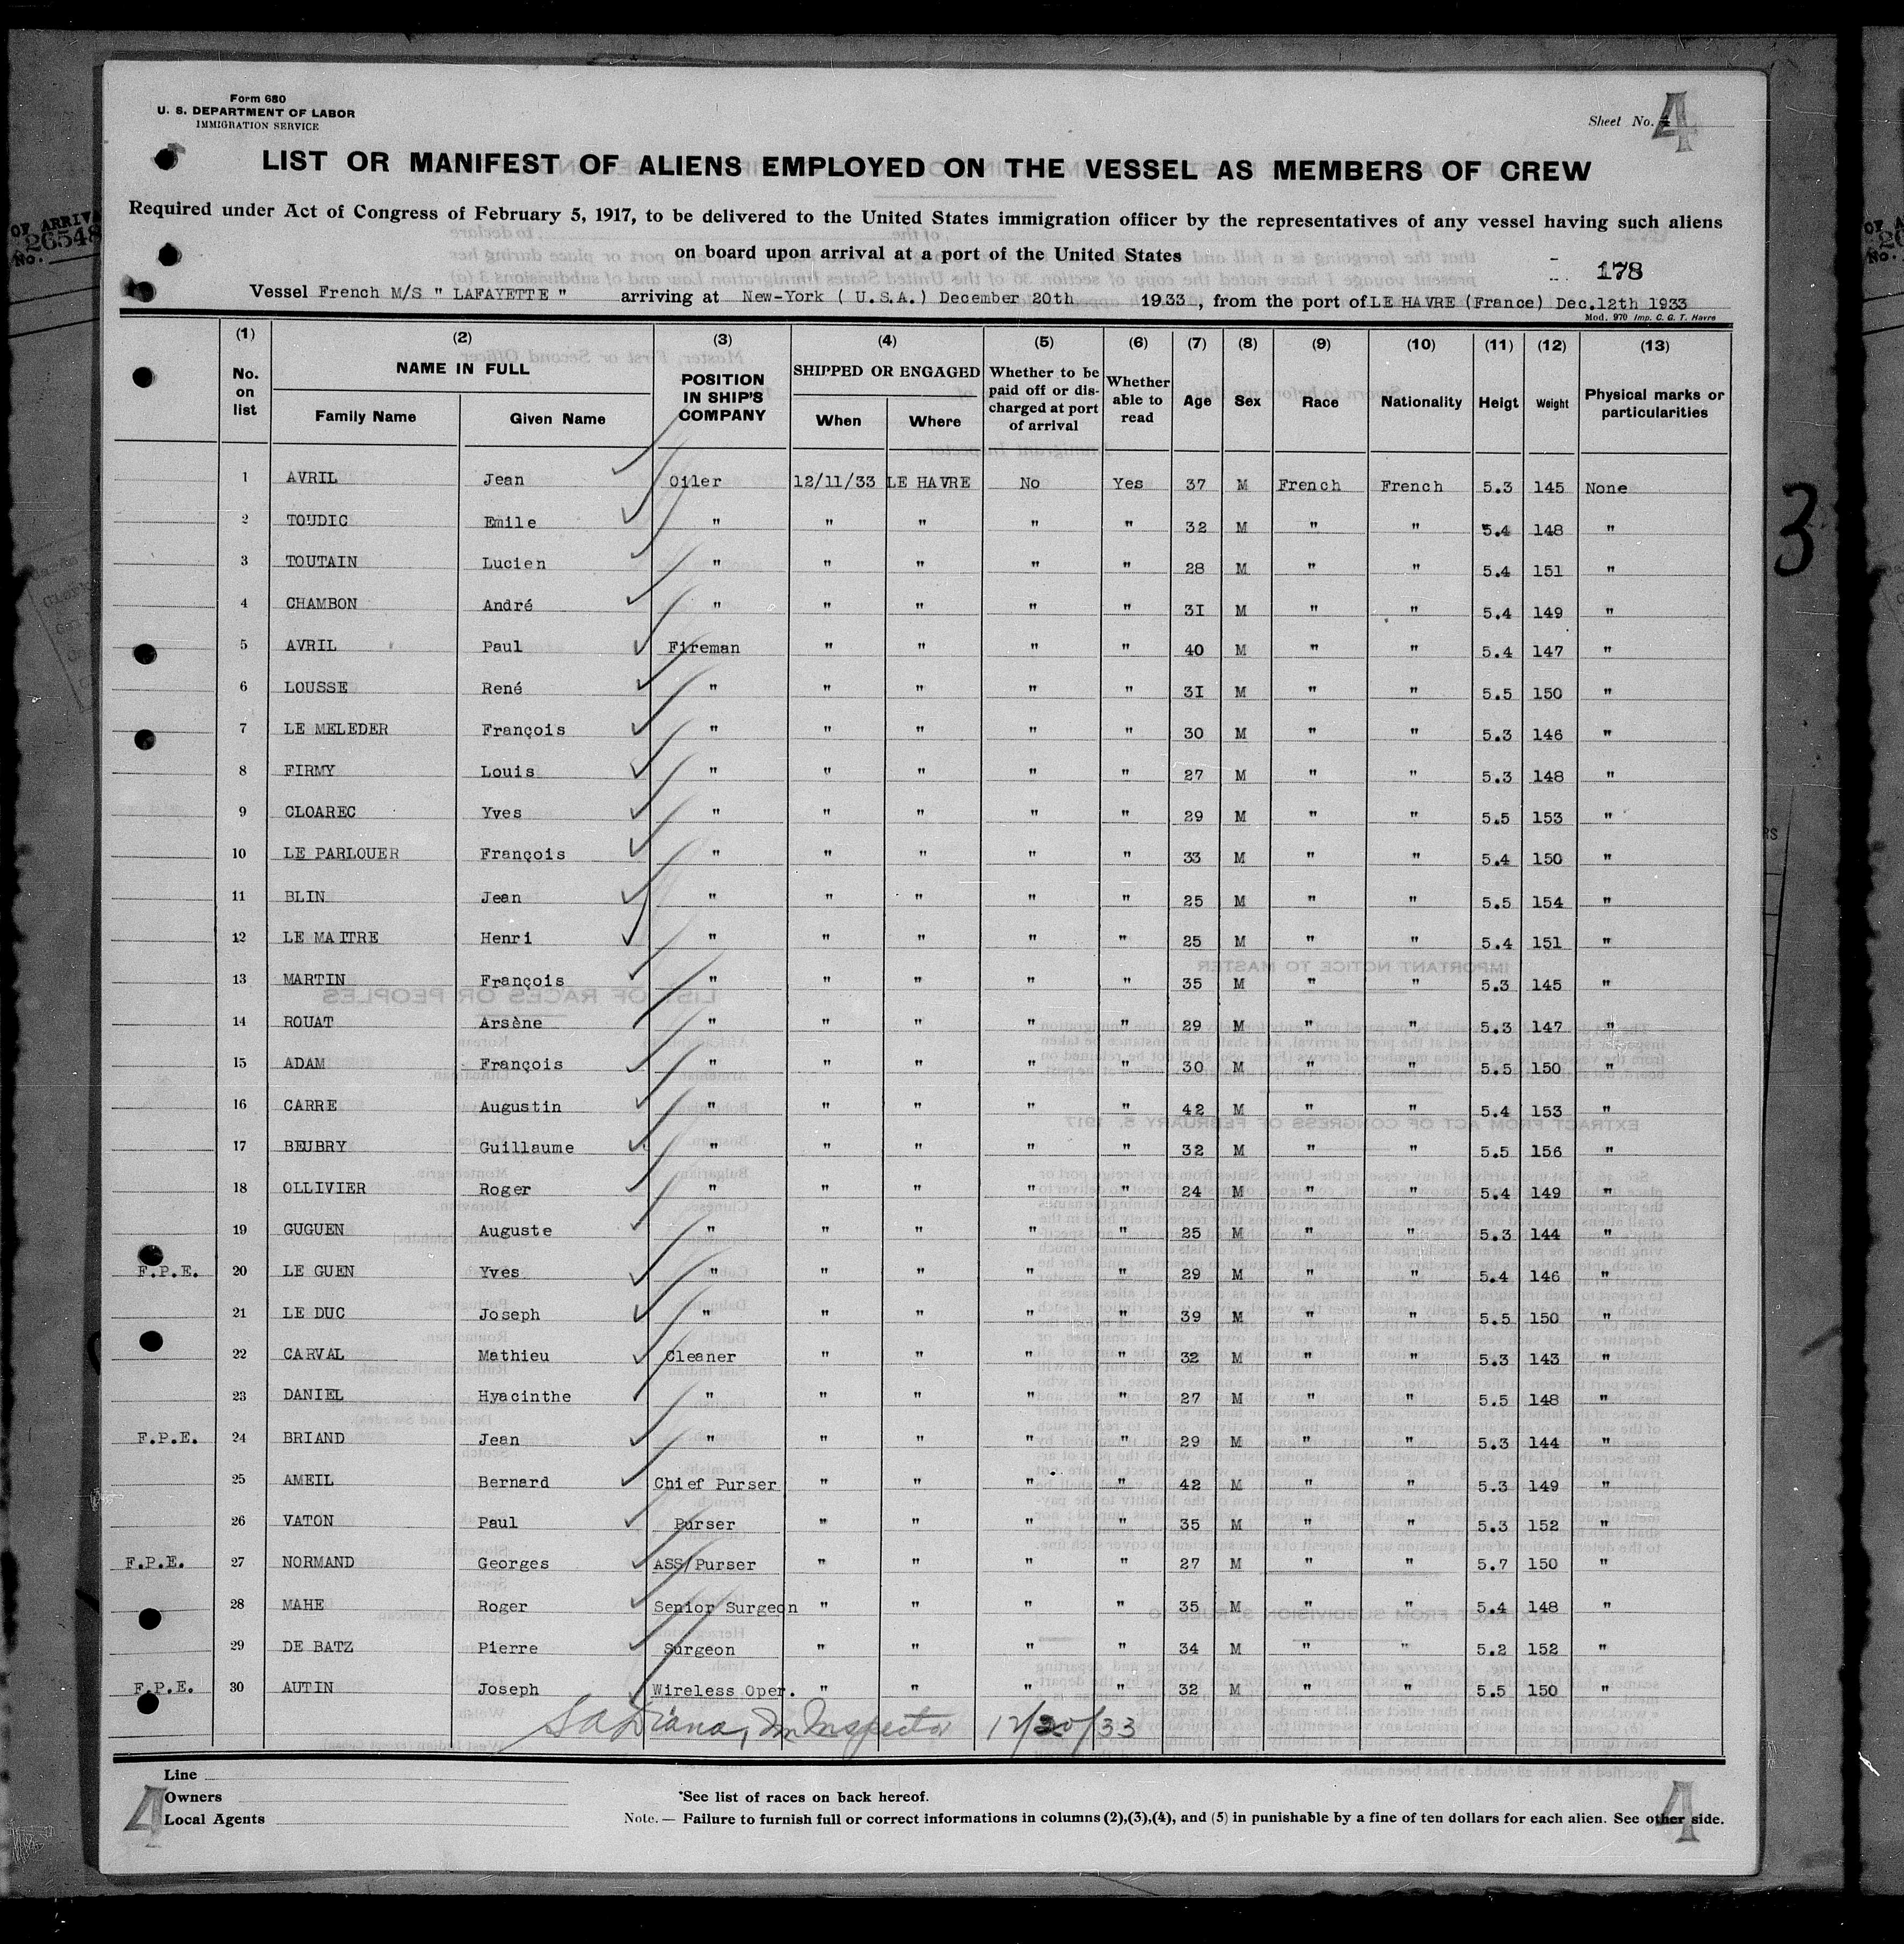 Form 680
U. S. DEPARTMENT OF LABOR
IMMIGRATION SERVICE
Sheet No. 4
LIST OR MANIFEST OF ALIENS EMPLOYED ON THE VESSEL AS MEMBERS OF CREW
Required under Act of Congress of February 5, 1917, to be delivered to the United States immigration officer by the representatives of any vessel having such aliens
on board upon arrival at a port of the United States
178
Vessel French M/S " LAFAYETTE " arriving at New-York ( U.S.A.) December 20th 1933, from the port of LE HAVRE (France) Dec.12th 1933
Mod. 970 Imp. C. G. T. Havre
(1) (2) (3) (4) (5) (6) (7) (8) (9) (10) (11) (12) (13)
No. on list NAME IN FULL Family Name Given Name POSITION IN SHIP'S COMPANY SHIPPED OR ENGAGED When Where Whether to be paid off or discharged at port of arrival Whether able to read Age Sex Race Nationality Heigt Weight Physical marks or particularities
1 AVRIL Jean Oiler 12/11/33 LE HAVRE No Yes 37 M French French 5.3 145 None
2 TOUDIC Emile " " " " " 32 M " " 5.4 148 "
3 TOUTAIN Lucien " " " " " 28 M " " 5.4 151 "
4 CHAMBON André " " " " " 31 M " " 5.4 149 "
5 AVRIL Paul Fireman " " " " 40 M " " 5.4 147 "
6 LOUSSE René " " " " " 31 M " " 5.5 150 "
7 LE MELEDER François " " " " " 30 M " " 5.3 146 "
8 FIRMY Louis " " " " " 27 M " " 5.3 148 "
9 CLOAREC Yves " " " " " 29 M " " 5.5 153 "
10 LE PARLOUER François " " " " " 33 M " " 5.4 150 "
11 BLIN Jean " " " " " 25 M " " 5.5 154 "
12 LE MAITRE Henri " " " " " 25 M " " 5.4 151 "
13 MARTIN François " " " " " 35 M " " 5.3 145 "
14 ROUAT Arsène " " " " " 29 M " " 5.3 147 "
15 ADAM François " " " " " 30 M " " 5.5 150 "
16 CARRE Augustin " " " " " 42 M " " 5.4 153 "
17 BEUBRY Guillaume " " " " " 32 M " " 5.5 156 "
18 OLLIVIER Roger " " " " " 24 M " " 5.4 149 "
19 GUGUEN Auguste " " " " " 25 M " " 5.3 144 "
F.P.E. 20 LE GUEN Yves " " " " " 29 M " " 5.4 146 "
21 LE DUC Joseph " " " " " 39 M " " 5.5 150 "
22 CARVAL Mathieu Cleaner " " " " 32 M " " 5.3 143 "
23 DANIEL Hyacinthe " " " " " 27 M " " 5.5 148 "
F.P.E. 24 BRIAND Jean " " " " " 29 M " " 5.3 144 "
25 AMEIL Bernard Chief Purser " " " " 42 M " " 5.3 149 "
26 VATON Paul Purser " " " " 35 M " " 5.3 152 "
F.P.E. 27 NORMAND Georges ASS/Purser " " " " 27 M " " 5.7 150 "
28 MAHE Roger Senior Surgeon " " " " 35 M " " 5.4 148 "
29 DE BATZ Pierre Surgeon " " " " 34 M " " 5.2 152 "
F.P.E. 30 AUTIN Joseph Wireless Oper. " " " " 32 M " " 5.5 150 "
Im Inspector 12/20/33
Line
Owners
Local Agents
*See list of races on back hereof.
Note. — Failure to furnish full or correct informations in columns (2),(3),(4), and (5) in punishable by a fine of ten dollars for each alien. See other side.
4
4
3
26548